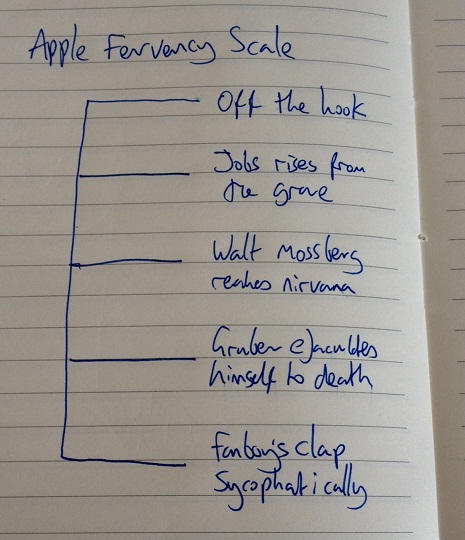 Apple Fervancy Scale
Off the hook
Jobs rises from
the grave
Walt Mossberg
reaches nirvana
Gruber ejaculates
himself to death
fanboys clap
Sycophatically